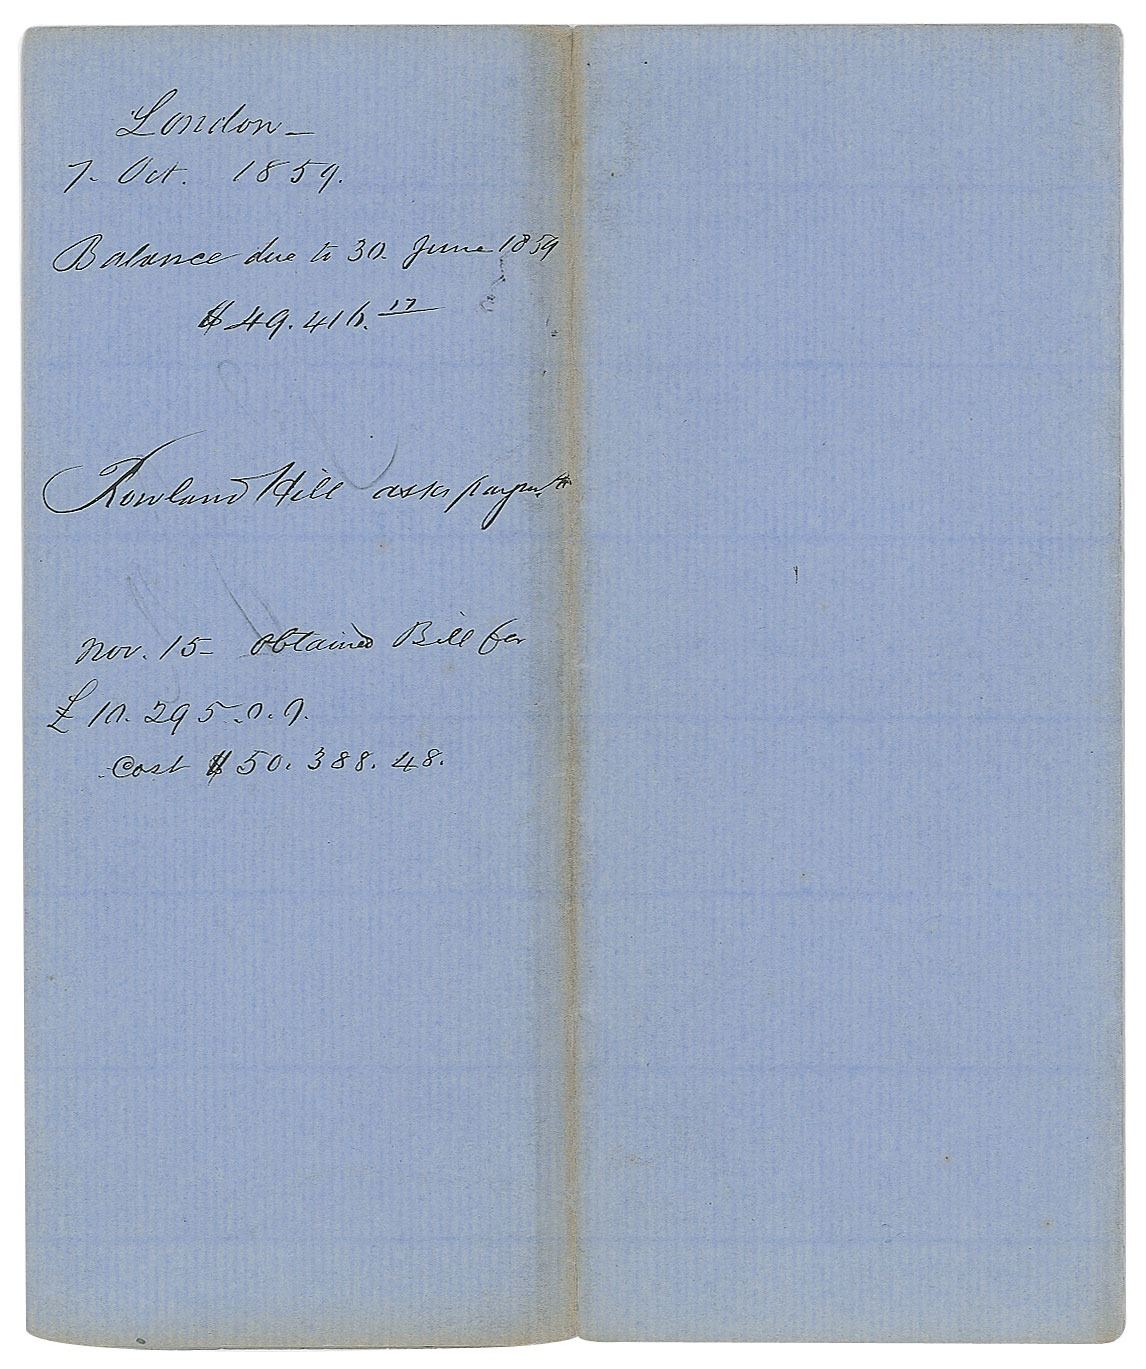 London —
7. Oct. 1859.
Balance due to 30. June 1859
$49.416.17
Rowland Hill asks paymt
Nov. 15 – obtained Bill for
£10.295–.0.9.
Cost $50.388.48.